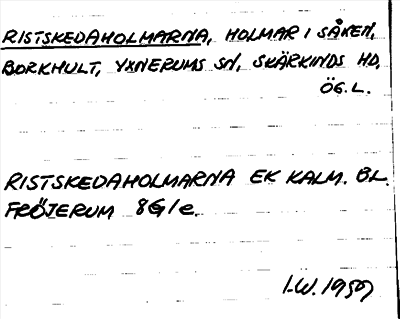 RISTSKEDAHOLMARNA, HOLMAR I SÅKEN,
BORKHULT, YXNERUMS SN, SKÄRKINDS HD,
ÖG. L.
RISTSKEDAHOLMARNA EK KALM. BL.
FRÖJERUM 8G/e.
I.W. 1959